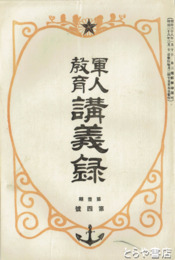 軍人
教育
講義録
第壹輯
第四號
とらや書店